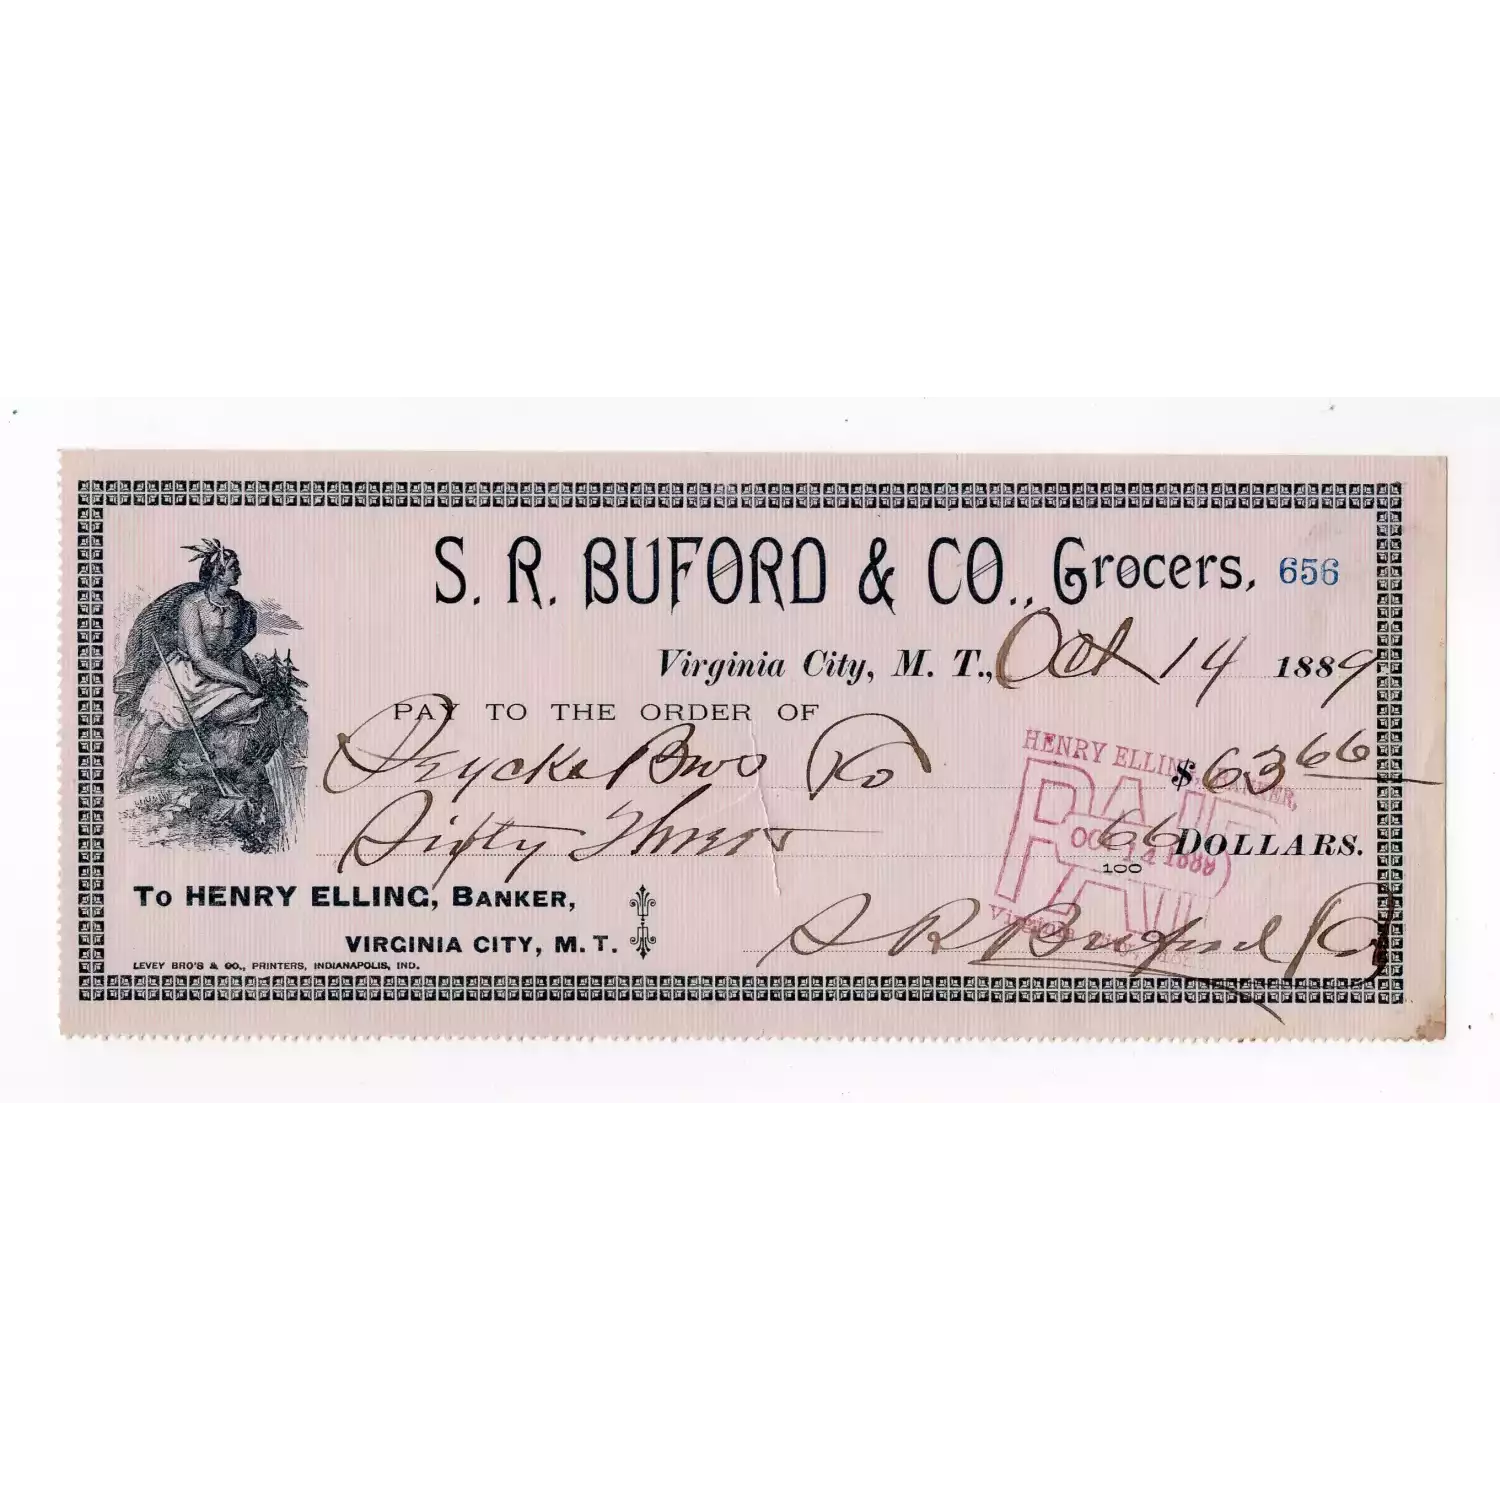 S. R. BUFORD & CO., Grocers, 656
Virginia City, M. T., Oct 14 1889
PAY TO THE ORDER OF
Bros Co $63 66
Sixty Three 66/100 DOLLARS.
HENRY ELLING, BANKER,
PAID
OCT 14 1889
Virginia City,
TO HENRY ELLING, BANKER,
VIRGINIA CITY, M. T.
S R Buford Co
LEVEY BRO'S & CO., PRINTERS, INDIANAPOLIS, IND.